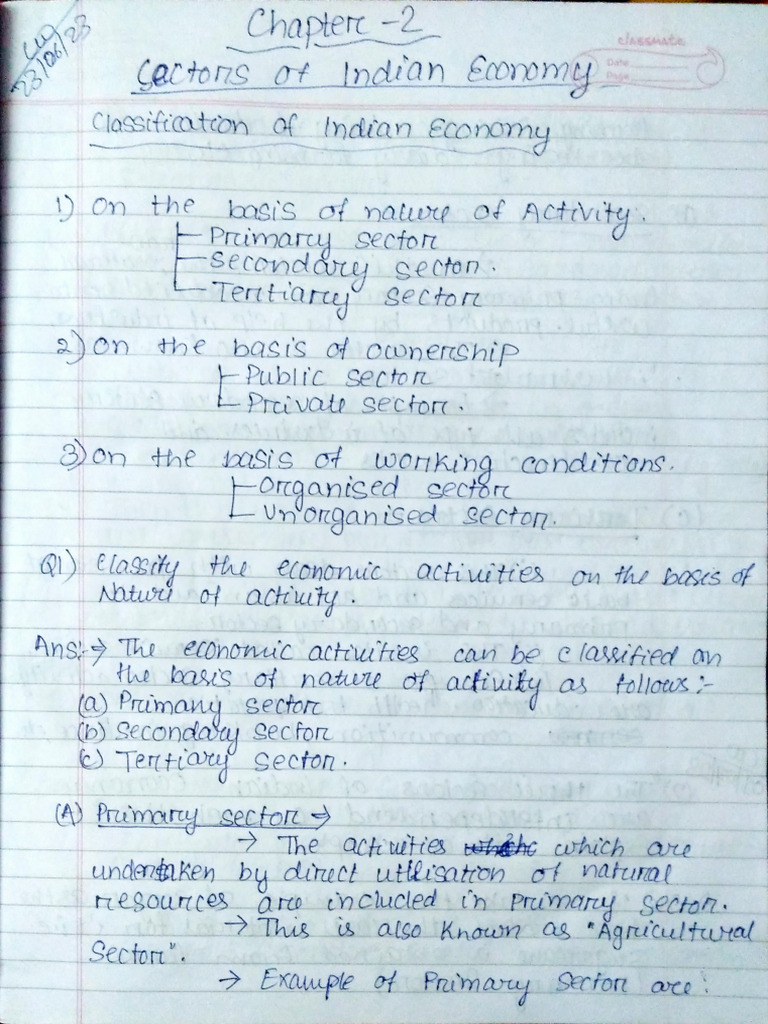 CW
23/06/23
Chapter - 2
classmate
Date
Page
Sectors of Indian Economy
Classification of Indian Economy
1) On the basis of nature of Activity.
Primary sector
Secondary sector.
Tertiary sector
2) On the basis of ownership
Public sector
Private sector.
3) On the basis of working conditions.
Organised sector
Unorganised sector.
Q1) Classify the economic activities on the basis of
Nature of activity.
Ans:-→ The economic activities can be classified on
the basis of nature of activity as follows:-
(a) Primary sector
(b) Secondary Sector
(c) Tertiary Sector.
(A) Primary sector →
→ The activities which are
undertaken by direct utilisation of natural
resources are included in Primary Sector.
→ This is also Known as "Agricultural
Sector".
→ Example of Primary Sector are: